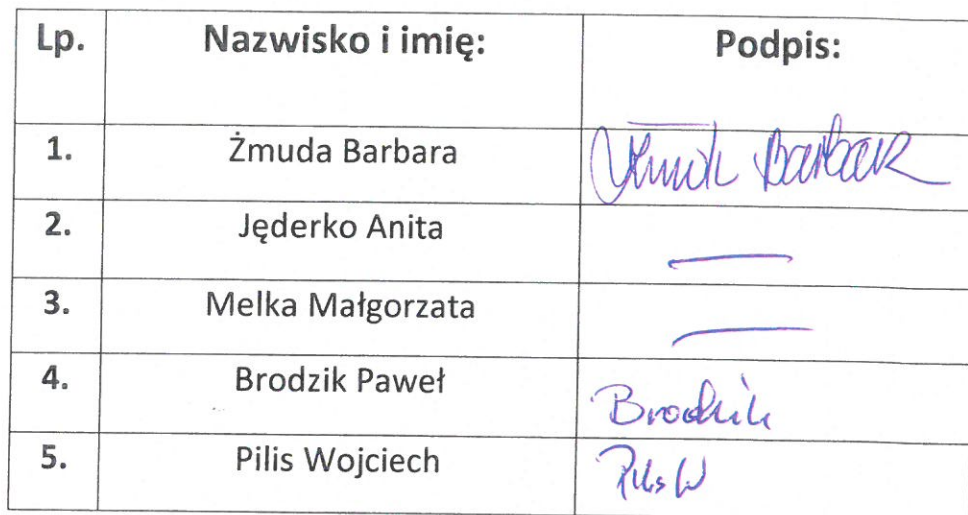 Lp. Nazwisko i imię: Podpis:
1. Żmuda Barbara Żmuda Barbara
2. Jęderko Anita —
3. Melka Małgorzata —
4. Brodzik Paweł Brodzik
5. Pilis Wojciech Pilis W